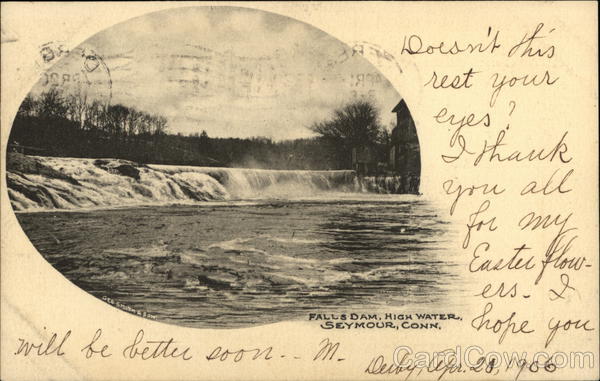 Doesn't this
rest your
eyes?
I thank
you all
for my
Easter flow-
ers. I
hope you
will be better soon.. M.
Derby, Apr. 28, 1906
FALLS DAM, HIGH WATER,
SEYMOUR, CONN.
CardCow.com